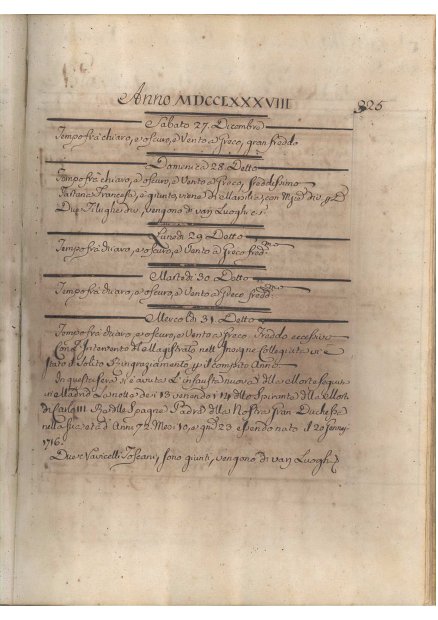 Anno MDCCLXXXVIII
825
Sabato 27. Dicembre
Tempo frà chiaro, e oscuro, e Vento a Greco, gran freddo
Domenica 28. Detto
Tempo frà chiaro, e oscuro, e Vento a Greco, freddissimo
Tartana Francese, è giunta, viene di Marsilia, con
Due Filugheidiv, vengono di van Luoghi
Lunedi 29. Detto
Tempo frà chiaro, e oscuro, e Vento a Greco fred.
Martedi 30. Detto
Tempo frà chiaro, e oscuro, e Vento a Greco fredd
Mercoldi 31. Detto
Tempo frà chiaro, e oscuro, e Vento a Greco. Freddo eccessivo
Con Intervento di Magistrato nell'Insigne Collegiata si è
stato il Solito Ringraziamento p il compito Anno
In questa sera si è avuta L'infausta nuova della Morte seguita
in Madrid La notte de 13 venendo i 14 dello Spirante della Morte
di Carlo III. Rè delle Spagne Padre della Nostra Gran Duchessa
nella sua età d'Anni 72. Mesi 10, e gni 23 essendo nato il 20
1716.
Due Navicelli Toscani, sono giunti, vengono di van Luoghi